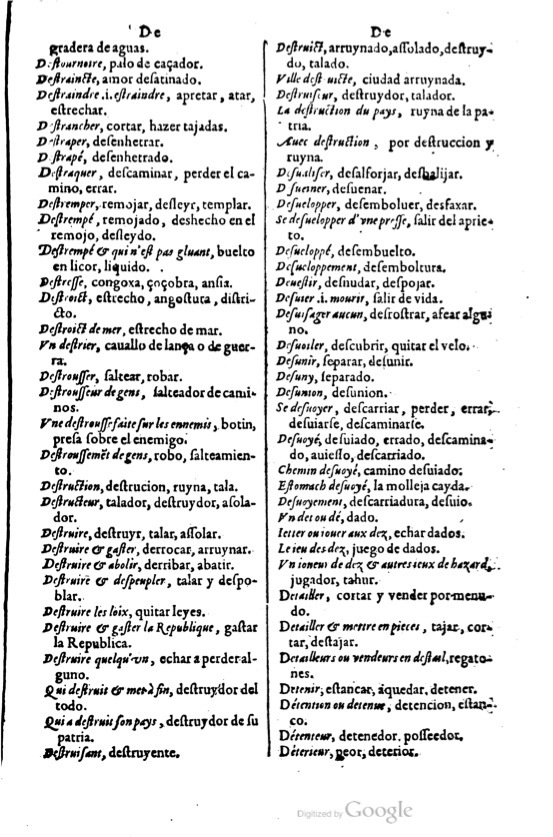 De
gradera de aguas.
Destournoire, palo de caçador.
Destraincte, amor desatinado.
Destraindre .i. estraindre, apretar, atar,
estrechar.
Destrancher, cortar, hazer tajadas.
Destraper, desenhetrar.
Destrapé, desenhetrado.
Destraquer, descaminar, perder el ca-
mino, errar.
Destremper, remojar, desleyr, templar.
Destrempé, remojado, deshecho en el
remojo, desleydo.
Destrempé & qui n'est pas gluant, buelto
en licor, liquido.
Destresse, congoxa, çoçobra, ansia.
Destroict, estrecho, angostura, distri-
cto.
Destroict de mer, estrecho de mar.
Vn destrier, cauallo de lança o de guer-
ra.
Destrousser, saltear, robar.
Destrousseur de gens, salteador de cami-
nos.
Vne destrousse faite sur les ennemis, botin,
presa sobre el enemigo.
Destroussemẽt de gens, robo, salteamien-
to.
Destruction, destrucion, ruyna, tala.
Destructeur, talador, destruydor, asola-
dor.
Destruire, destruyr, talar, assolar.
Destruire & gaster, derrocar, arruynar.
Destruire & abolir, derribar, abatir.
Destruire & despeupler, talar y despo-
blar.
Destruire les loix, quitar leyes.
Destruire & gaster la Republique, gastar
la Republica.
Destruire quelqu'vn, echar a perder al-
guno.
Qui destruit & met à fin, destruydor del
todo.
Qui a destruit son pays, destruydor de su
patria.
Destruisant, destruyente.
De
Destruict, arruynado, assolado, destruy-
do, talado.
Ville destruicte, ciudad arruynada.
Destruiseur, destruydor, talador.
La destruction du pays, ruyna de la pa-
tria.
Auec destruction, por destruccion y
ruyna.
Desualiser, desalforjar, desbalijar.
Desuenner, desuenar.
Desuelopper, desemboluer, desfaxar.
Se desuelopper d'vne presse, salir del aprie-
to.
Desueloppé, desembuelto.
Desueloppement, desemboltura.
Deuestir, desnudar, despojar.
Desuier .i. mourir, salir de vida.
Desuisager aucun, desrostrar, afear algui
no.
Desuoiler, descubrir, quitar el velo.
Desunir, separar, desunir.
Desuny, separado.
Desunion, desunion.
Se desuoyer, descarriar, perder, errar,
desuiarse, descaminarse.
Desuoyé, desuiado, errado, descamina-
do, auiesso, descarriado.
Chemin desuoyé, camino desuiado.
Estomach desuoyé, la molleja cayda.
Desuoyement, descarriadura, desuio.
Vn det ou dé, dado.
Ietter ou iouer aux dez, echar dados.
Le ieu des dez, juego de dados.
Vn ioueur de dez & autres ieux de hazard,
jugador, tahur.
Detailler, cortar y vender por menu-
do.
Detailler & mettre en pieces, tajar, cor-
tar, destajar.
Detailleurs ou vendeurs en destail, regato-
nes.
Detenir, estancar, aquedar, detener.
Détention ou detenue, detencion, estan-
co.
Détenteur, detenedor, posseedor.
Déterieur, peor, deterior.
Digitized by Google